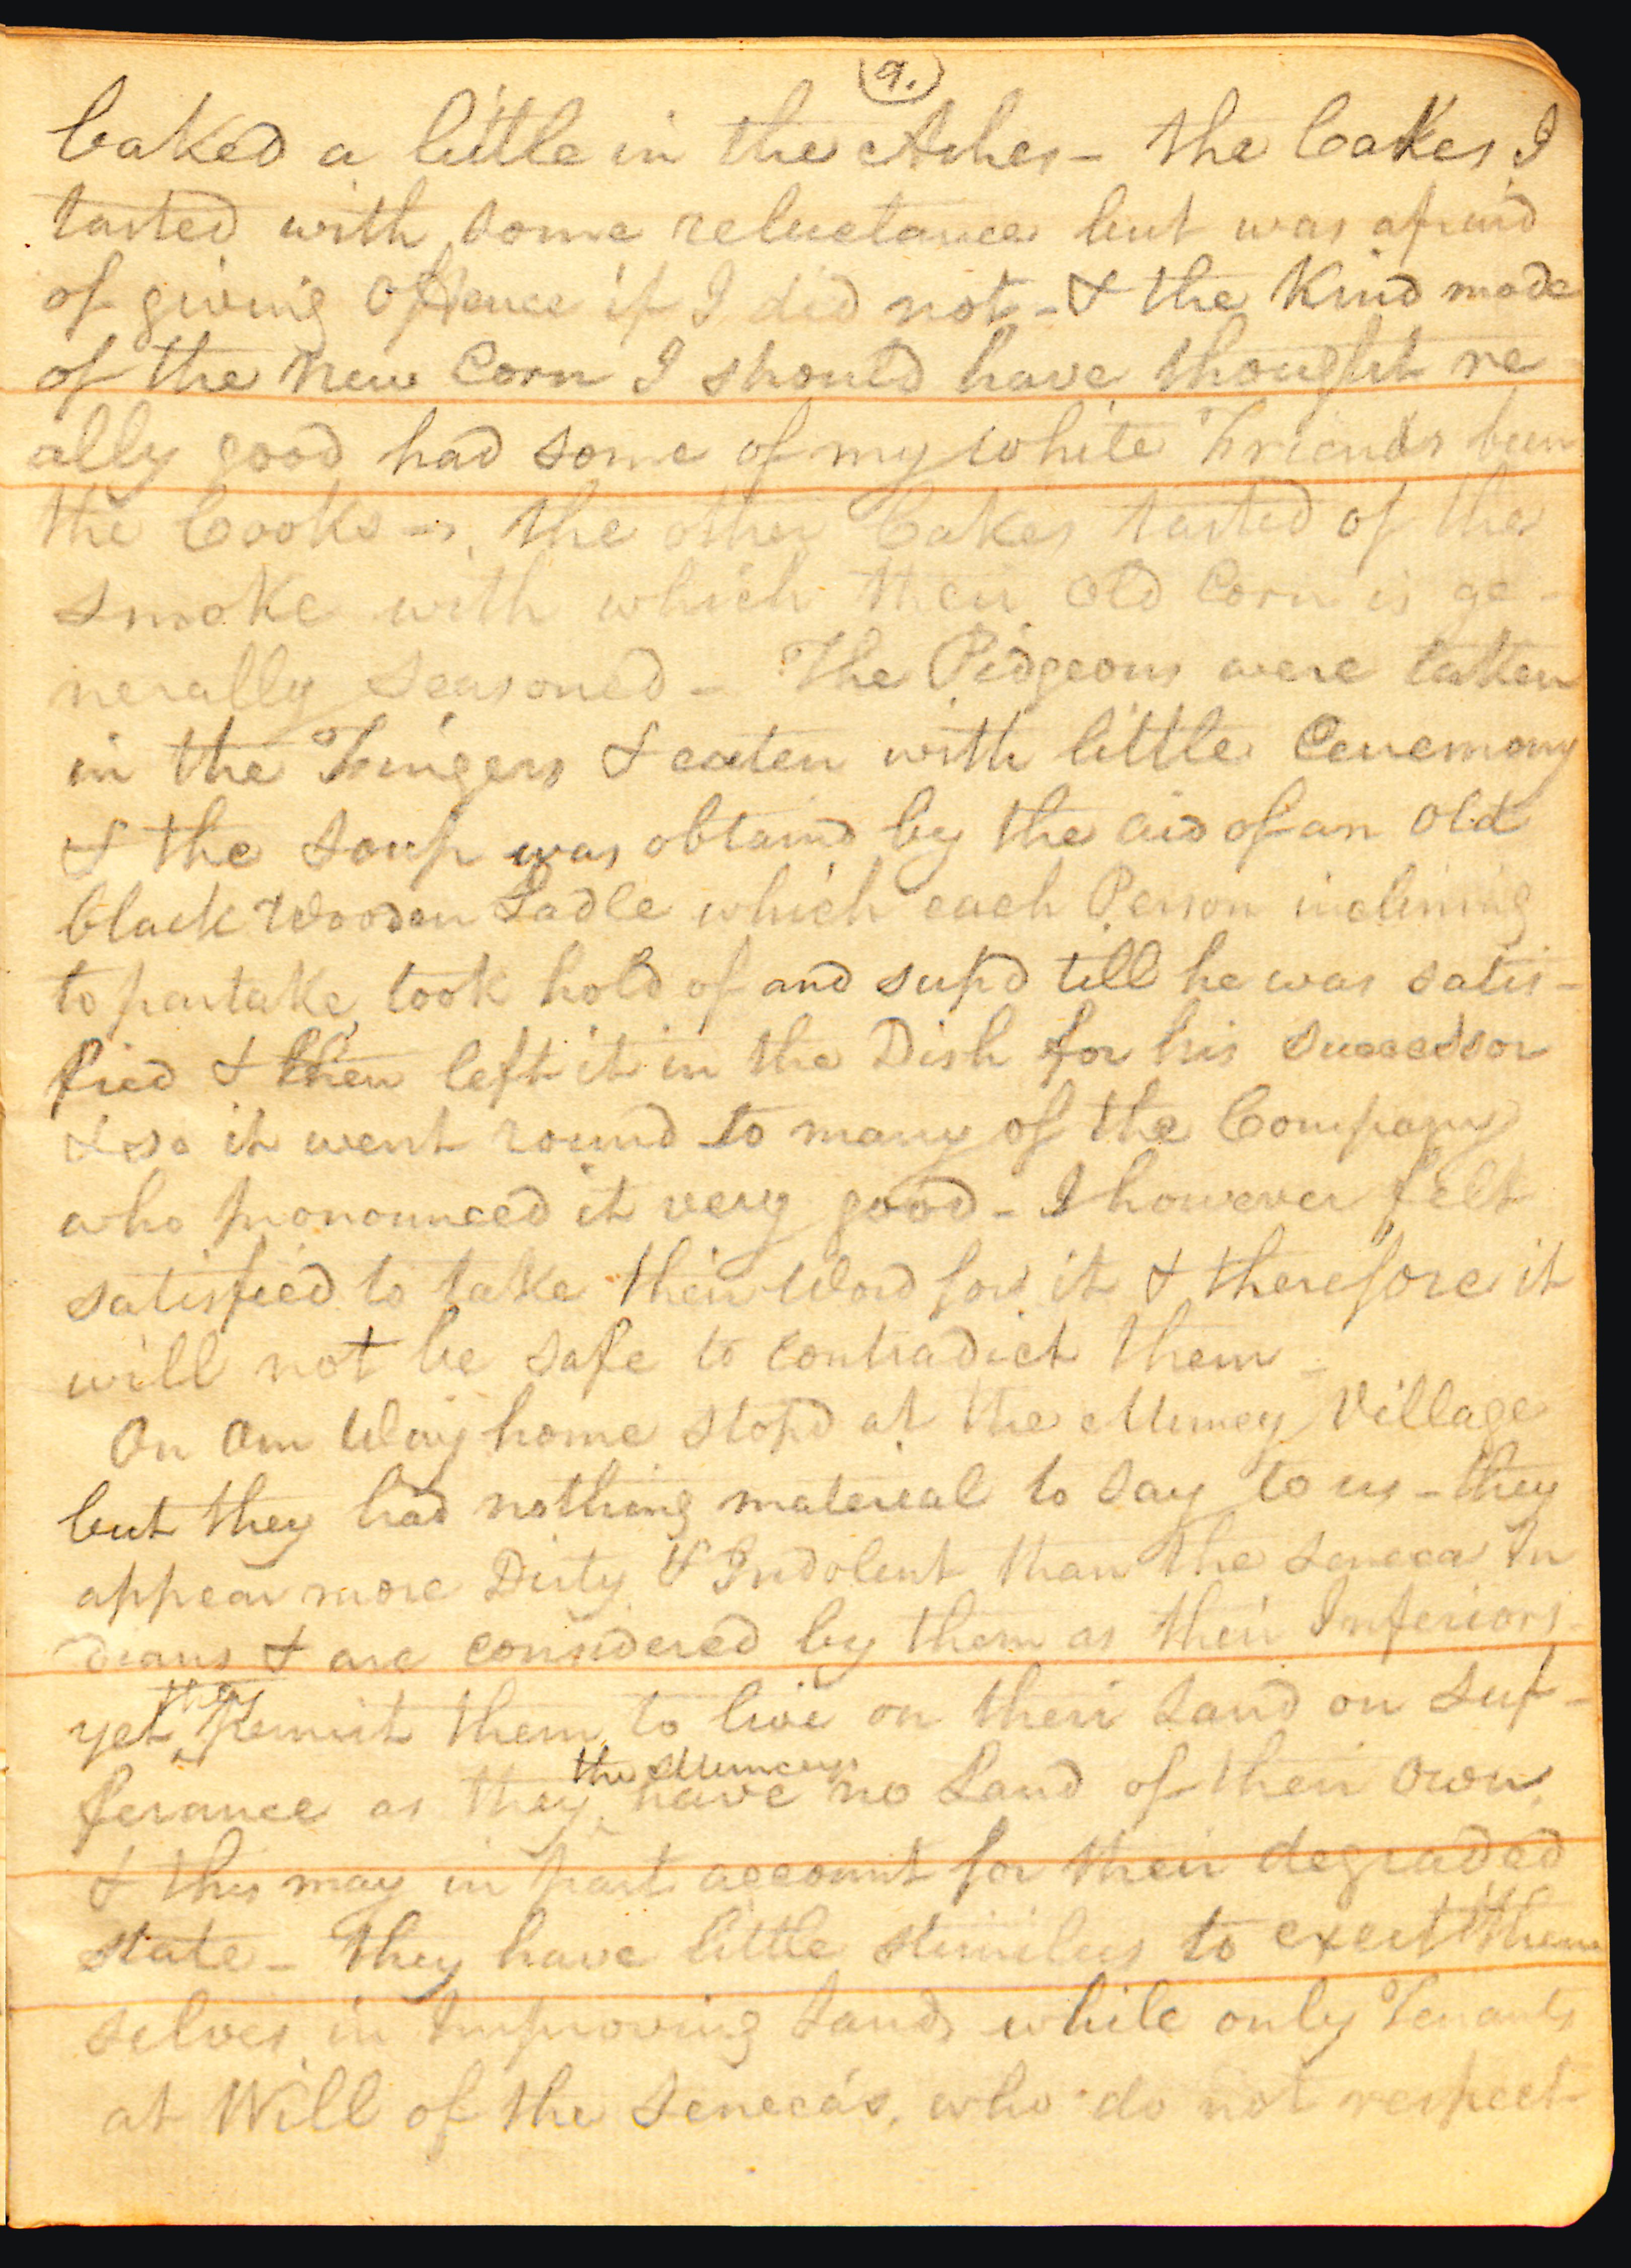 (9.)
baked a little in the Ashes - the Cakes I
tasted with some reluctance but was afraid
of giving Offence if I did not - & the Kind made
of the New Corn I should have thought re
ally good had some of my white Friends been
the Cooks - the other Cakes tasted of the
smoke with which their Old Corn is ge-
nerally seasoned - The Pidgeons were taken
in the Fingers & eaten with little Ceremony
& the Soup was obtaind by the aid of an Old
black Wooden Ladle which each Person inclining
to partake took hold of and supd till he was satis-
fied & then left it in the Dish for his successor
& so it went round to many of the Company
who pronounced it very good - I however felt
satisfied to take their Word for it & therefore it
will not be safe to contradict them -
On Our Way home stopd at the Muncy Village
but they had nothing matereal to say to us - they
appear more Dirty & Indolent than the Seneca In
dians & are considered by them as their Inferiors -
yet they permit them to live on their Land on suf-
ferance as they the Muncys have no Land of their Own.
& this may in part account for their degraded
state - They have little stimilus to exert them
selves in Improving Lands while only Tenants
at Will of the Seneca's, who do not respect